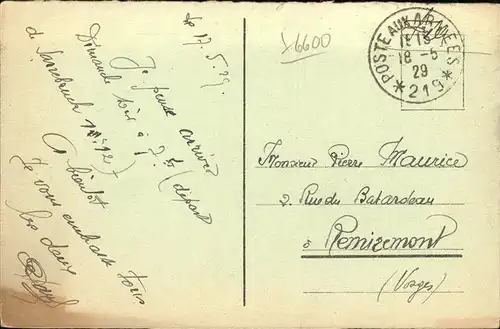 Le 17.5.29.
Je pense arriver
Dimanche soir à 7h (départ
de Sarrebruck 12h12)
A bientôt
Je vous embrasse tous
les deux
16600
POSTE AUX ARMÉES
18-5
29
*219*
Monsieur Pierre Maurice
2. Rue du Batardeau
à Remiremont
(Vosges)